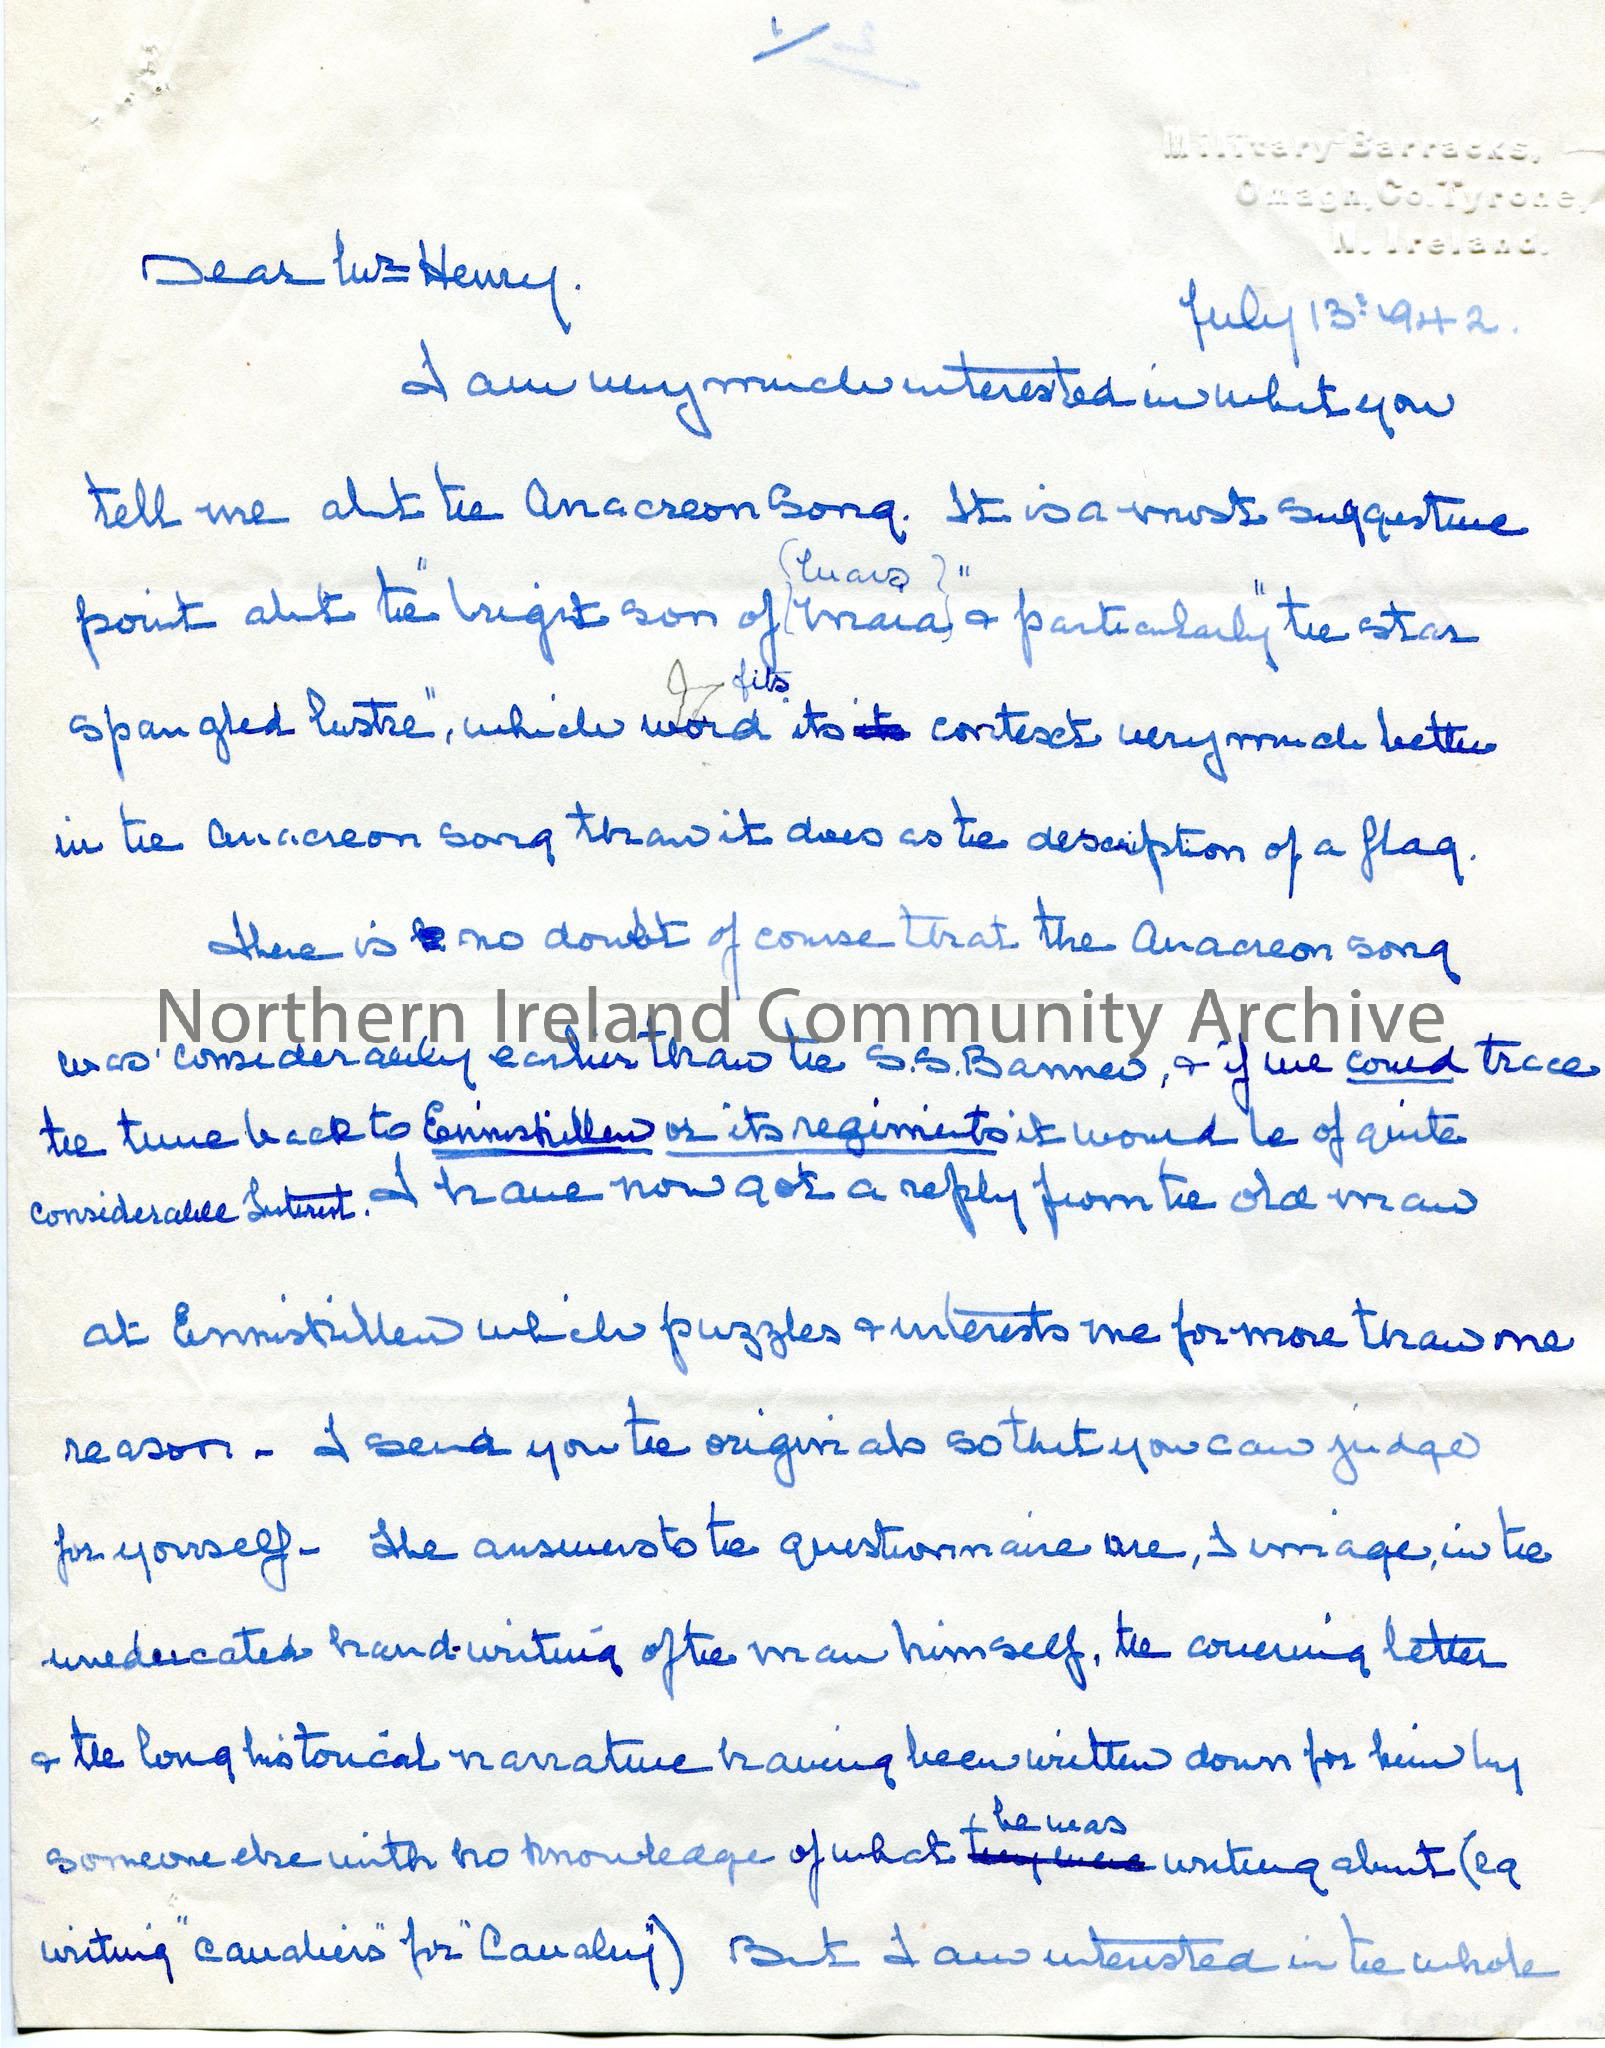 1/
Military Barracks,
Omagh, Co. Tyrone,
N. Ireland.
Dear Mr Henry.
July 13: 1942.
I am very much interested in what you
tell me abt the Anacreon Song. It is a most suggestive
point abt the "bright son of {Mars} {Maia}" & particularly "the star
spangled lustre", which word fits its its context very much better
in the Anacreon song than it does as the description of a flag.
There is no doubt of course that the Anacreon song
was considerably earlier than the S.S. Banner, & if we could trace
the tune back to Enniskillen or its regiments it would be of quite
considerable Interest. I have now got a reply from the old man
at Enniskillen which puzzles & interests me for more than one
reason - I send you the originals so tht you can judge
for yourself - The answers to the questionnaire are, I imagine, in the
uneducated hand-writing of the man himself, the covering letter
& the long historical narrative having been written down for him by
someone else with no knowledge of what they were he was writing about (eg
writing "Cavaliers" for "Cavalry") But I am interested in the whole
Northern Ireland Community Archive